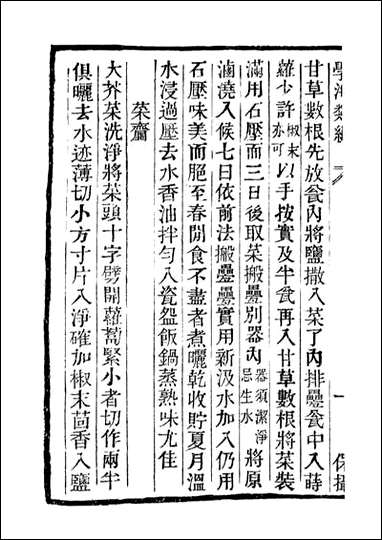 學海類編
一
保攝
甘草數根先放瓮內將鹽撒入菜了內排疊瓮中入蒔
蘿少許椒末亦可以手按實及半瓮再入甘草數根將菜裝
滿用石壓面三日後取菜搬疊別器內器須潔淨忌生水將原
滷澆入候七日依前法搬疊疊實用新汲水加入仍用
石壓味美而脆至春間食不盡者煮曬乾收貯夏月溫
水浸過壓去水香油拌勻入瓷盌飯鍋蒸熟味尤佳
菜虀
大芥菜洗淨將菜頭十字劈開蘿蔔緊小者切作兩半
俱曬去水迹薄切小方寸片入淨確加椒末茴香入鹽